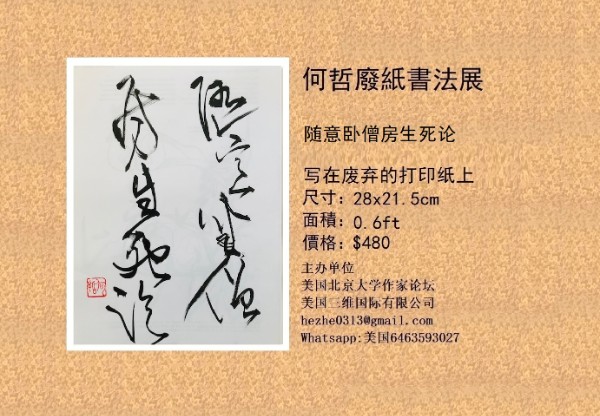 随意卧僧
房生死论
何哲廢紙書法展
随意卧僧房生死论
写在废弃的打印纸上
尺寸：28x21.5cm
面積：0.6ft
價格：$480
主办单位
美国北京大学作家论坛
美国三维国际有限公司
hezhe0313@gmail.com
Whatsapp:美国6463593027